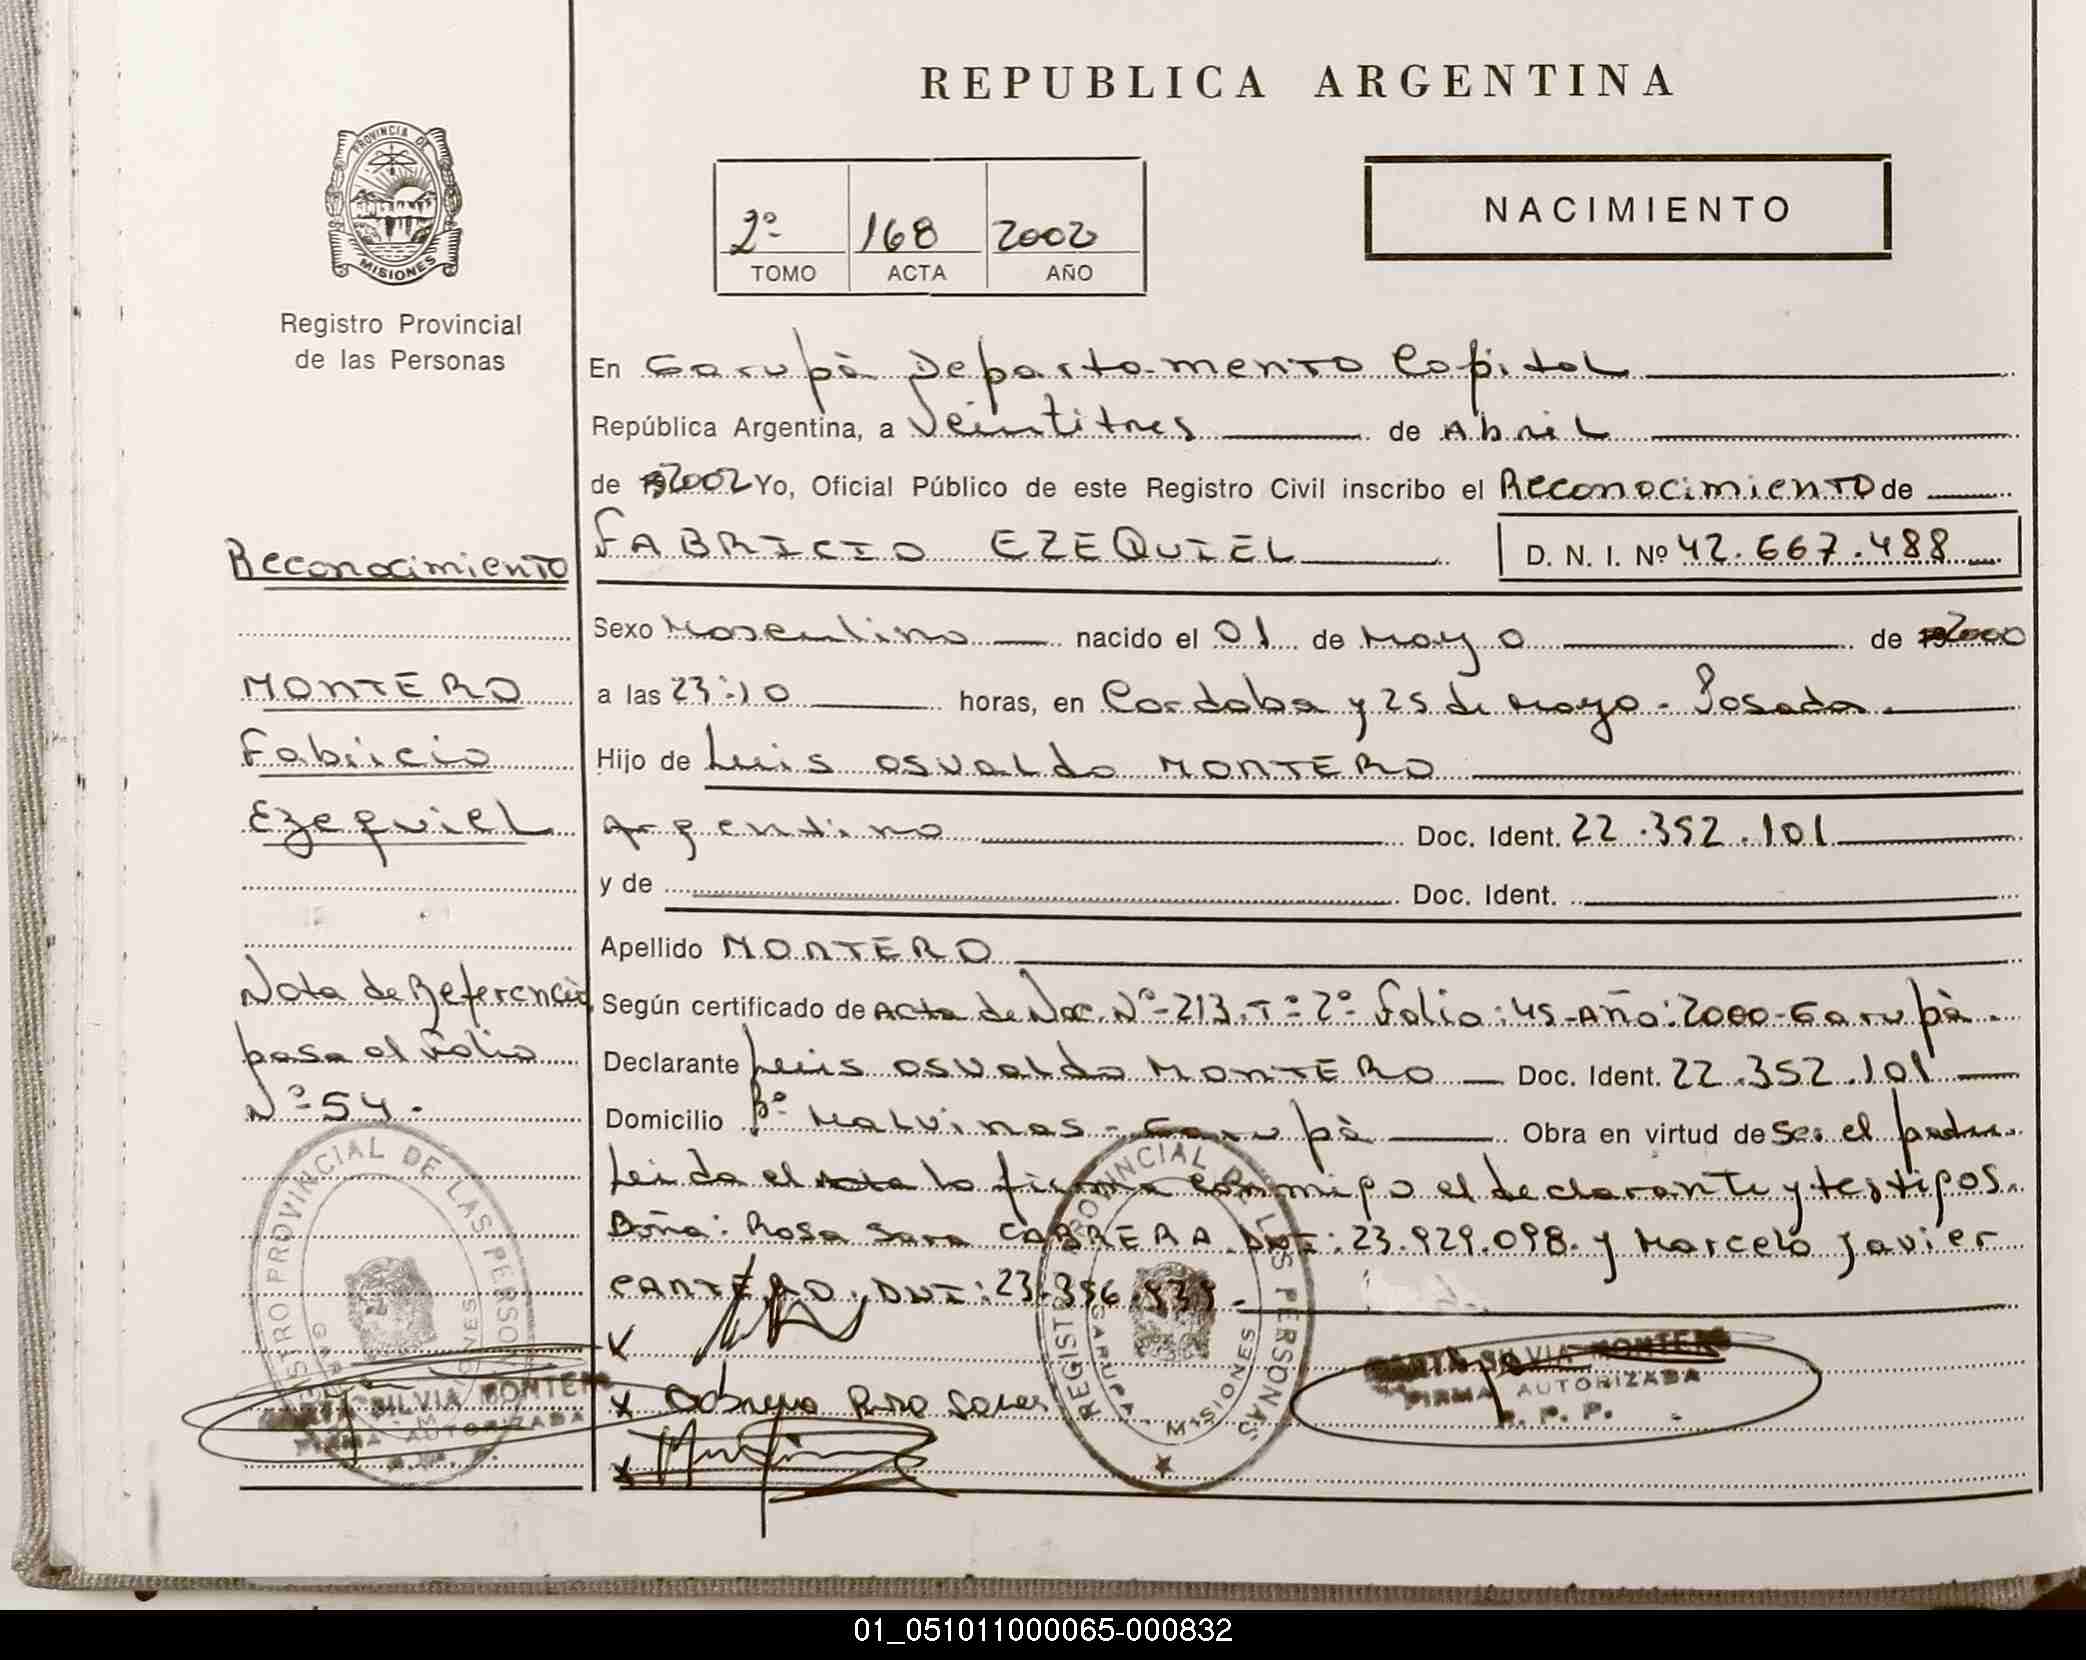 REPUBLICA ARGENTINA
PROVINCIA DE
MISIONES
Registro Provincial
de las Personas
2º 168 2002
TOMO ACTA AÑO
NACIMIENTO
En Garupà Departamento Capital
República Argentina, a Veintitres de Abril
de 2002 Yo, Oficial Público de este Registro Civil inscribo el Reconocimiento de
FABRICIO EZEQUIEL D. N. I. Nº 42.667.488
Sexo Masculino nacido el 01 de Mayo de 2000
a las 23:10 horas, en Cordoba y 25 de Mayo - Posadas.
Hijo de Luis Osvaldo MONTERO
Argentino Doc. Ident. 22.352.101
y de Doc. Ident.
Apellido MONTERO
Según certificado de Acta de Nac. Nº-213. Tº 2º Folio: 45-Año: 2000-Garupà.
Declarante Luis Osvaldo MONTERO Doc. Ident. 22.352.101
Domicilio Bº Malvinas - Garupà Obra en virtud de Ser el padre.
Leida el Acta la firma conmigo el declarante y testigos.
Doña: Rosa Sara CABRERA DNI: 23.929.098. y Marcelo Javier
CANTERO. DNI: 23.
Reconocimiento
MONTERO
Fabricio
Ezequiel
Nota de Referencia
pasa al Folio
Nº 54.
REGISTRO PROVINCIAL DE LAS PERSONAS
GARUPA - MISIONES
SILVIA MONTERO
FIRMA AUTORIZADA
R. P. P.
X
X
X
REGISTRO PROVINCIAL DE LAS PERSONAS
GARUPA - MISIONES
SILVIA MONTERO
FIRMA AUTORIZADA
R. P. P.
01_051011000065-000832